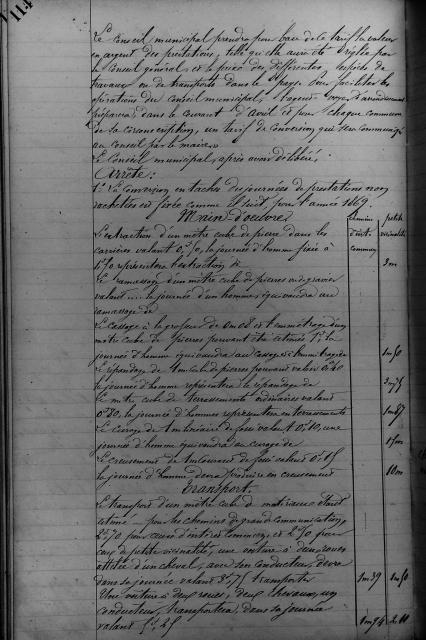 114
Le Conseil municipal prendra pour base de le tarif la valeur
en argent des prestations, telle qu'elle aura été réglée par
le Conseil général, et le prix des différentes espèces de
travaux ou de transports dans le pays. Pour faciliter les
opérations du conseil municipal, l'agent voyer d'arrondissement
préparera, dans le courant d'avril et pour chaque commune
de sa circonscription, un tarif de conversion qui sera communiqué
au Conseil par le maire.
Le Conseil municipal, après avoir délibéré,
Arrête:
1° La conversion en tâches des journées de prestations non
rachetées est fixée comme il suit, pour l'année 1869.
Main d'oeuvre
chemins d'int. commun
petite vicinalité
L'extraction d'un mètre cube de pierre dans les
carrières valant 0,50, la journée d'homme fixée à
1,50 représentera l'extraction de 3m
Le ramassage d'un mètre cube de pierres ou gravier
valant ... la journée d'un homme équivaudra au
ramassage de
Le cassage à la grosseur de 0m08 et l'emmétrage d'un
mètre cube de pierres peuvent être estimés 1f, la
journée d'homme équivaudra au cassage et à l'emmétrage de 1m50
Le répandage de 1m cube de pierres pouvant valoir 0,40
la journée d'homme représentera le répandage de 3m75
Le mètre cube de terrassements ordinaires valant
0,80, la journée d'hommes représentera en terrassements 1m87
Le curage de 1m linéaire de fossé valant 0,10, une
journée d'homme équivaudra au curage de 15m
Le creusement de 1m linéaire de fossé valant 0,15
la journée d'homme devra produire en creusement 10m
Transport.
Le transport d'un mètre cube de matériaux étant
estimé — pour les chemins de grande communication,
2,70 pour ceux d'intérêt commun, et 2,50 pour
ceux de petite vicinalité, une voiture à deux roues
attelée d'un cheval, avec son conducteur, devra
dans sa journée valant 3,75 transporter 1m39 1m50
Une voiture à deux roues, deux chevaux, un
conducteur, transportera, dans sa journée
valant 5,25 1m94 2.10